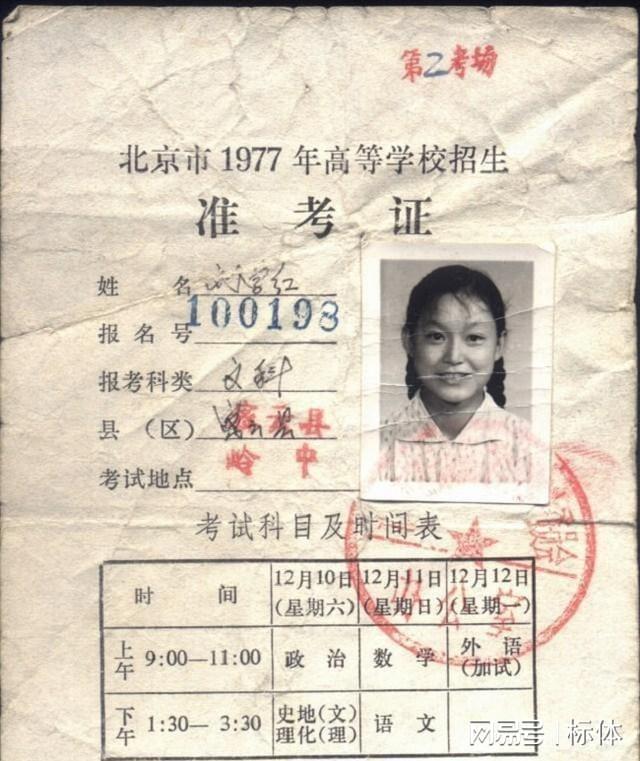 第2考场
北京市1977年高等学校招生
准考证
姓 名 刘学红
报名号 100198
报考科类 文科
县（区） 密云县 密云县
考试地点 岭中
考试科目及时间表
时 间 12月10日（星期六） 12月11日（星期日） 12月12日（星期一）
上午 9:00—11:00 政治 数学 外语（加试）
下午 1:30—3:30 史地（文）理化（理） 语文
网易号 | 标体